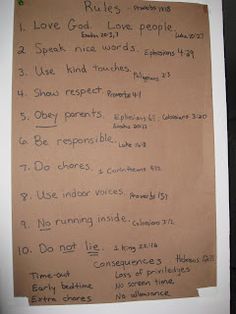 Rules - Proverbs
1. Love God. Love people.
Exodus 20:3,7 Luke 10:27
2. Speak nice words. Ephesians 4:29
3. Use kind touches.
4. Show respect. Proverbs
5. Obey parents. Ephesians 6:1 - Colossians 3:20
Exodus 20:12
6. Be responsible. Luke
7. Do chores. 1 Corinthians 4:2
8. Use indoor voices. Proverbs 15:1
9. No running inside. Colossians 3:12
10. Do not lie. 1 King 22:16
Consequences Hebrews 12:11
Time-out Loss of priviledges
Early bedtime No screen time
Extra chores No allowance